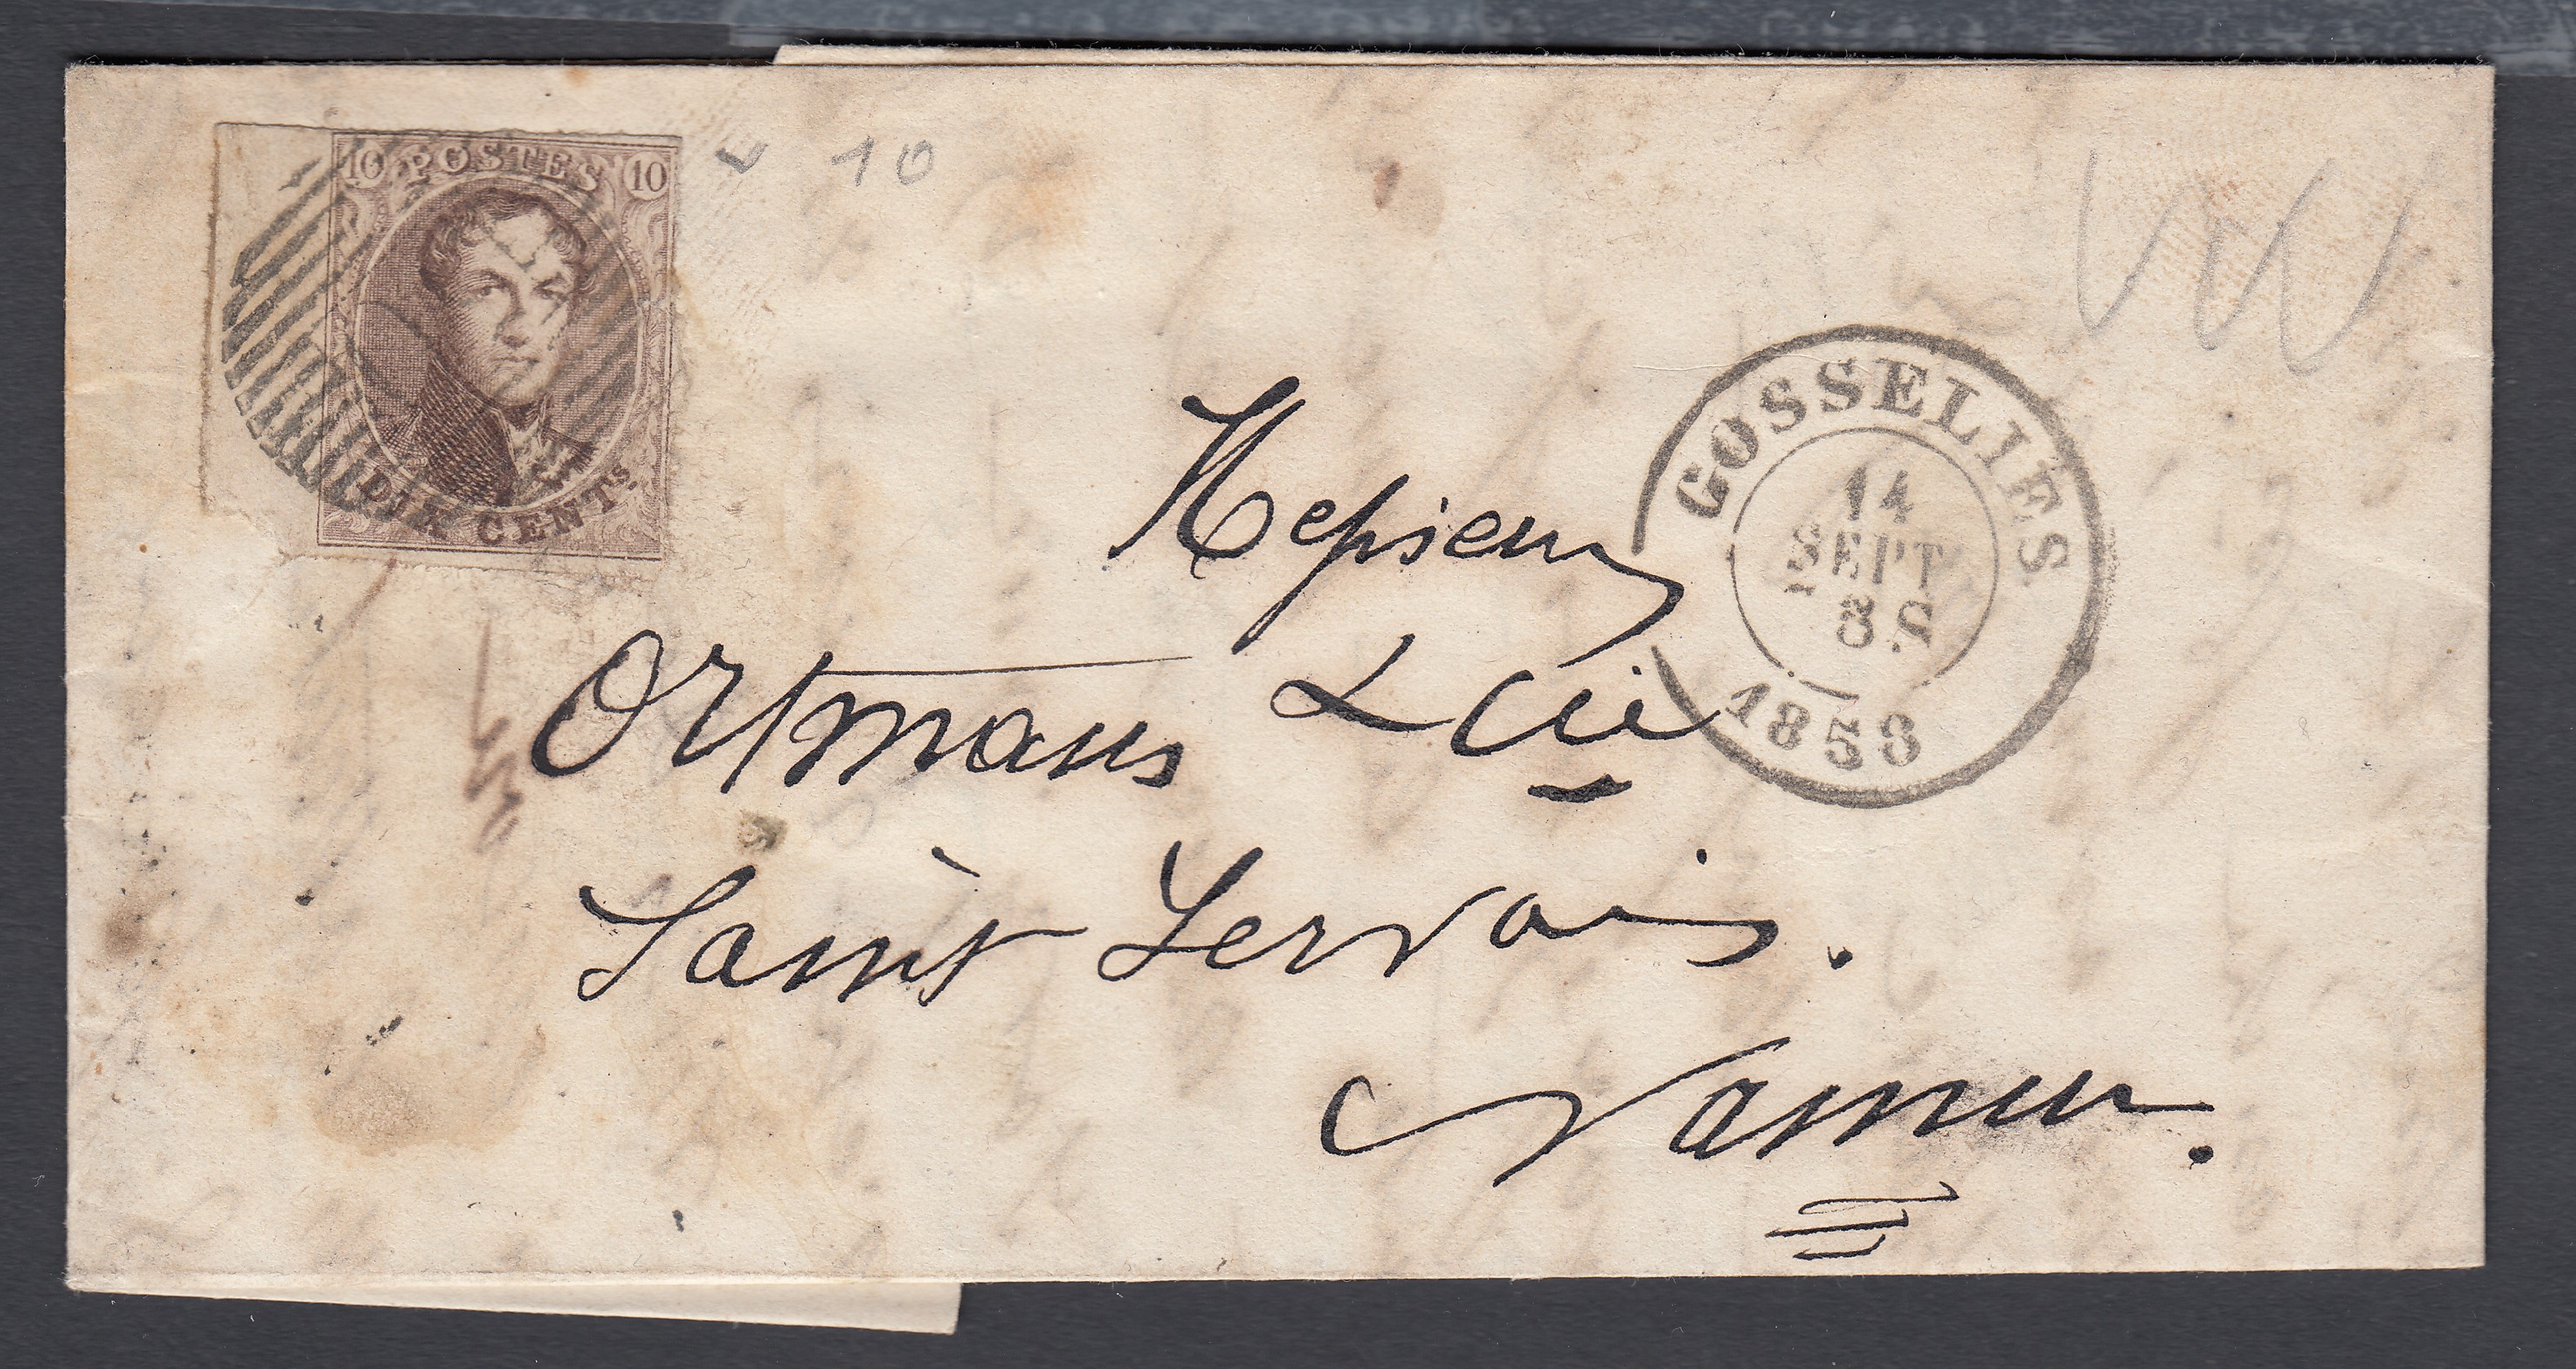 10 POSTES 10
DIX CENTS.
10
GOSSELIES
14
SEPT
8 S
1858
Messieurs
Ortmans & Cie
Saint Servais.
Namur.